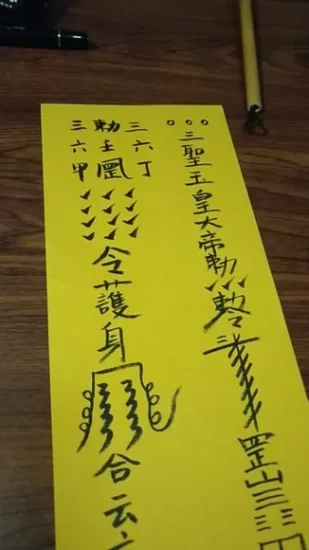 三聖玉皇大帝勅
罡山三三
三六丁
勅壬凰
三六甲
令護身
合云